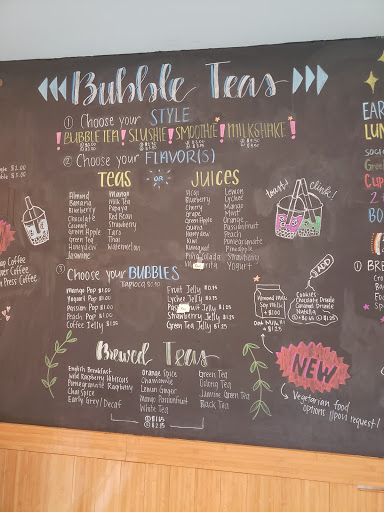 Bubble Teas
① Choose your STYLE
BUBBLE TEA! SLUSHIE! SMOOTHIE! MILKSHAKE!
② Choose your FLAVOR(S)
TEAS OR JUICES
Almond
Banana
Blueberry
Chocolate
Coconut
Green Apple
Green Tea
Honeydew
Jasmine
Mango
Milk Tea
Papaya
Red Bean
Strawberry
Taro
Thai
Watermelon
Acai
Blueberry
Cherry
Grape
Green Apple
Guava
Honeydew
Kiwi
Mangovi
Piña Colada
Lemon
Lychee
Mango
Mint
Orange
Passionfruit
Peach
Pomegranate
Pineapple
Strawberry
Yogurt
toast! clink!
③ Choose your BUBBLES
TAPIOCA
Mango Pop $1.00
Yogurt Pop $1.00
Passion Pop $1.00
Peach Pop $1.00
Coffee Jelly $.75
Fruit Jelly $0.75
Lychee Jelly $0.75
Strawberry Jelly $1.25
Green Tea Jelly $1.25
ADD
Almond Milk
Soy Milk
+ $1.00
Oat Milk
Cookies
Chocolate Drizzle
Caramel Drizzle
Nutella
Brewed Teas
English Breakfast
Wild Raspberry Hibiscus
Pomegranate Raspberry
Chai Spice
Early Grey/Decaf
Orange Spice
Chamomile
Lemon Ginger
Mango Passionfruit
White Tea
Green Tea
Oolong Tea
Jasmine Green Tea
Black Tea
NEW
Vegetarian food
options (upon request)